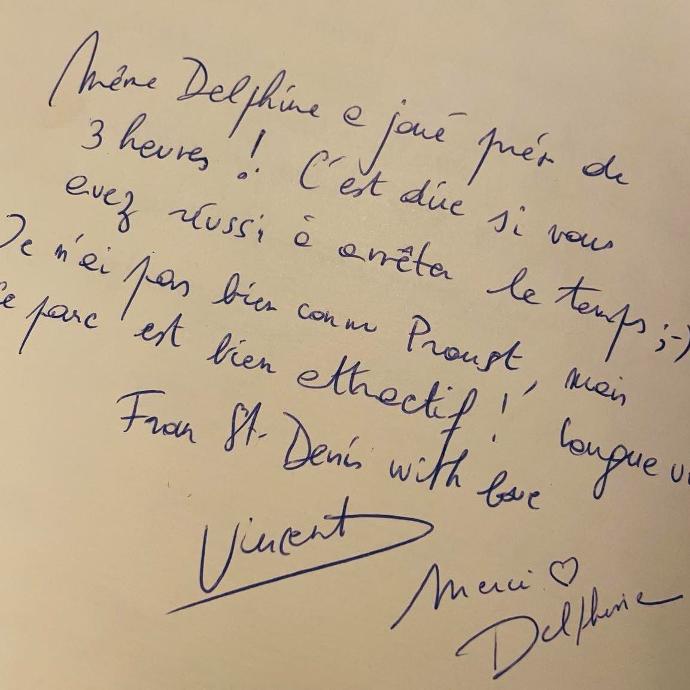 Même Delphine a joué près de
3 heures ! C'est dire si vous
avez réussi à arrêter le temps ;-)
Je n'ai pas bien connu Proust, mais
le parc est bien attractif ! longue
From St-Denis with love
Vincent
Merci ♡
Delphine